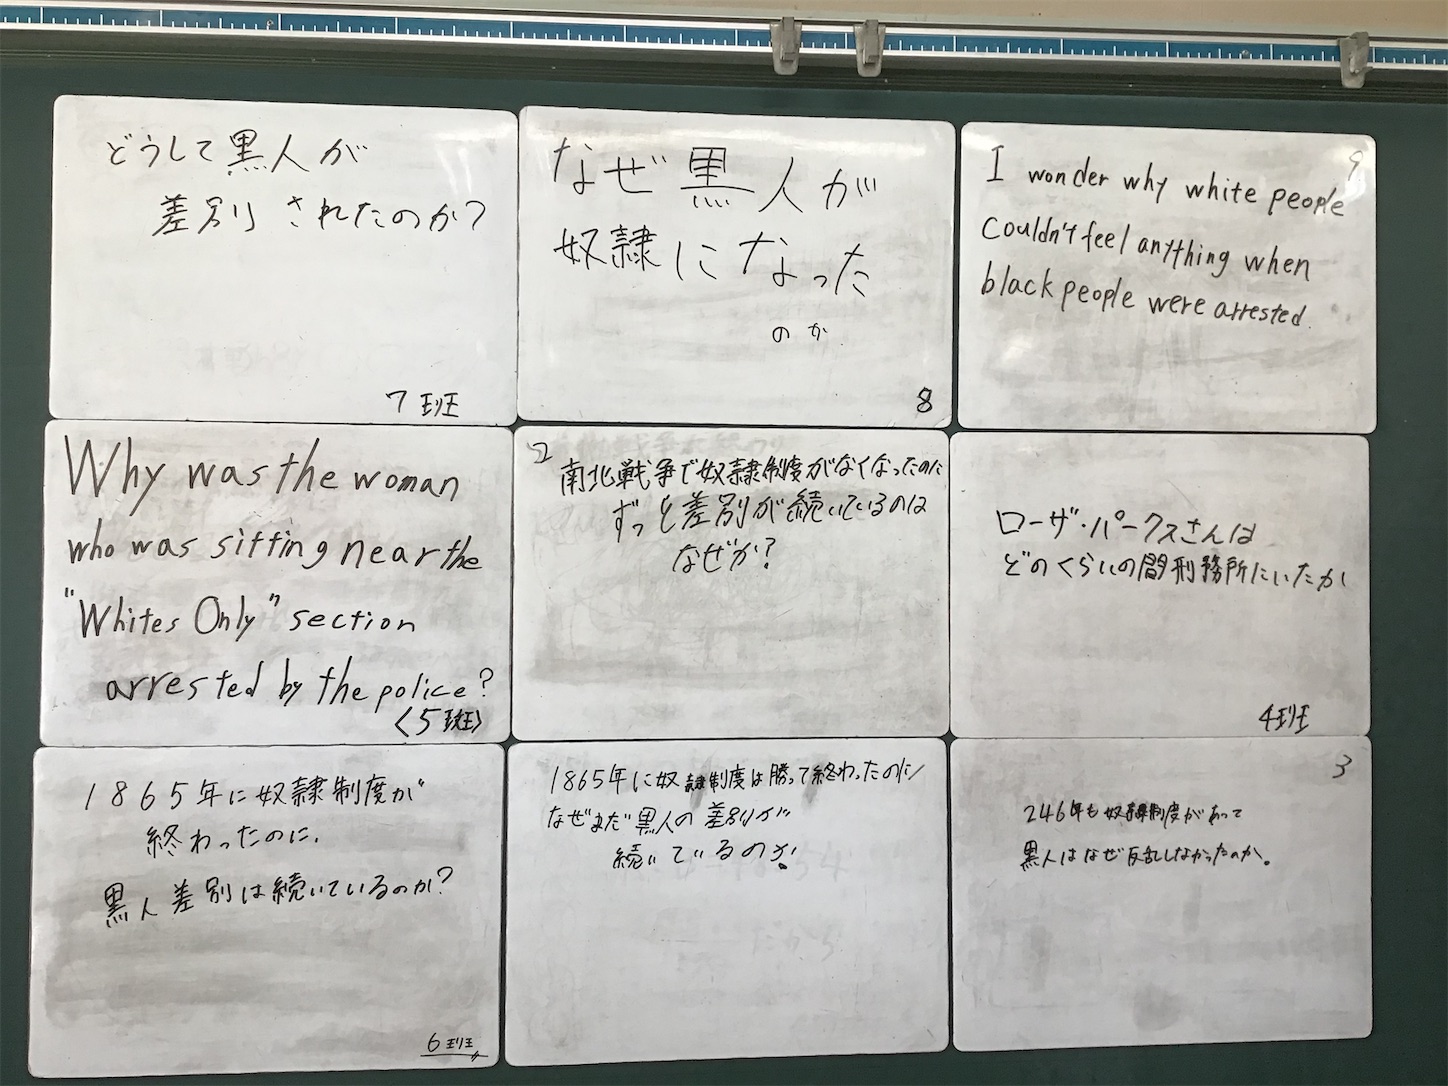 どうして黒人が
差別されたのか?
7班
なぜ黒人が
奴隷になった
のか
8
9
I wonder why white people
couldn't feel anything when
black people were arrested.
Why was the woman
who was sitting near the
"Whites Only" section
arrested by the police?
〈5班〉
2
南北戦争で奴隷制度がなくなったのに
ずっと差別が続いているのは
なぜか?
ローザ・パークスさんは
どのくらいの間刑務所にいたか
4班
1865年に奴隷制度が
終わったのに、
黒人差別は続いているのか?
6班
1865年に奴隷制度は勝って終わったのに
なぜまだ黒人の差別が
続いているのか!
3
246年も奴隷制度があって
黒人はなぜ反乱しなかったのか。